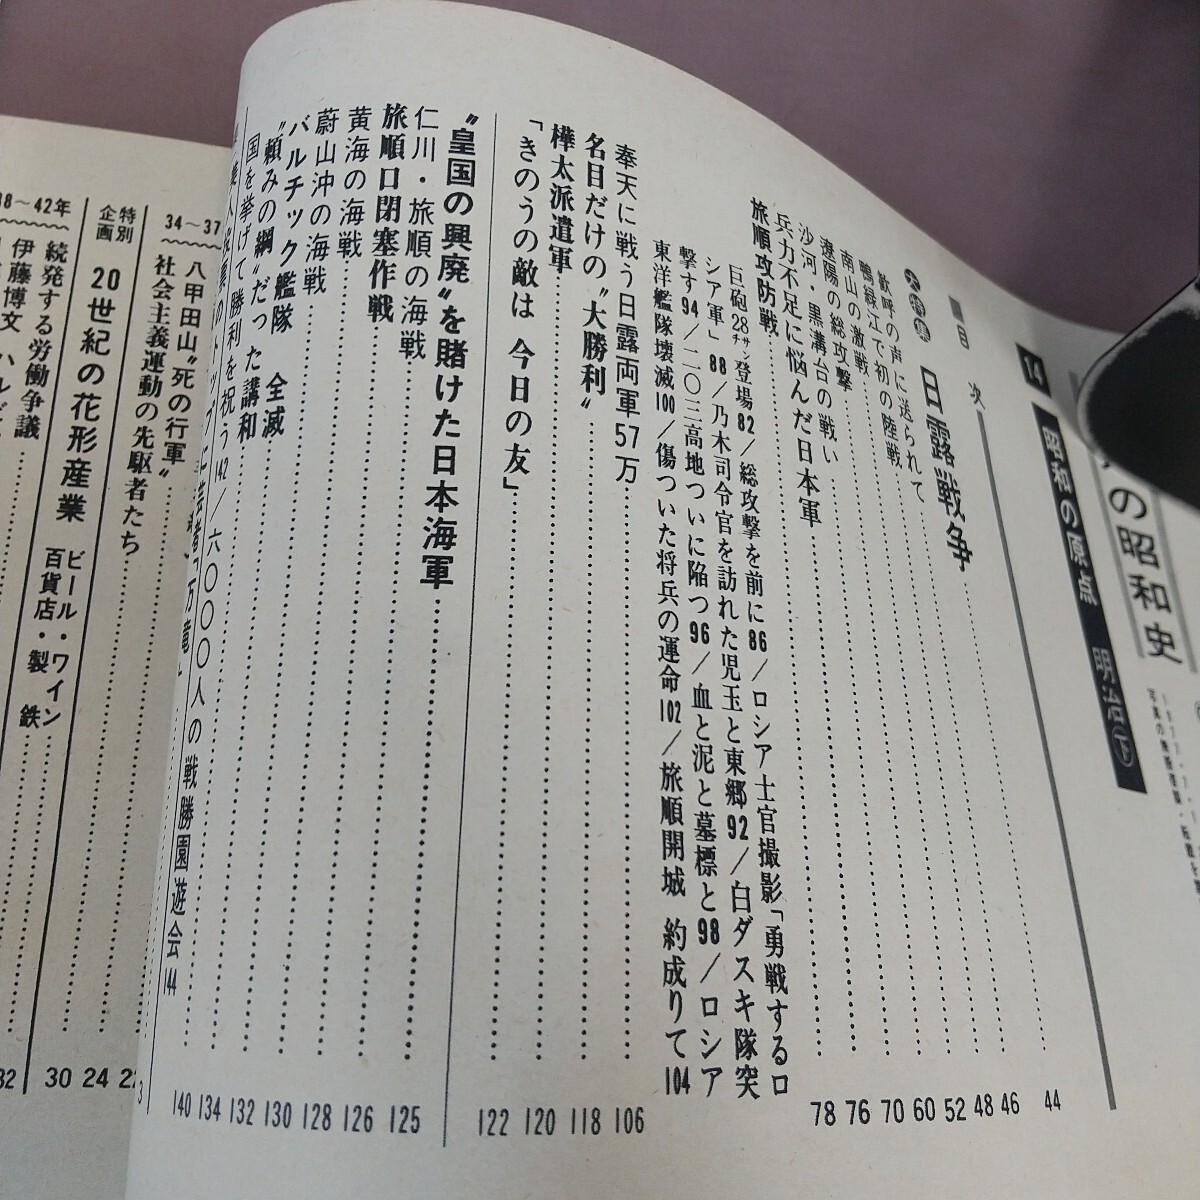 の昭和史
14 昭和の原点 明治(下)
目次
大特集 日露戦争
歓呼の声に送られて 44
鴨緑江で初の陸戦 46
南山の激戦 48
遼陽の総攻撃 52
沙河・黒溝台の戦い 60
兵力不足に悩んだ日本軍 70
旅順攻防戦 76
78
巨砲28サンチ登場82/総攻撃を前に86/ロシア士官撮影「勇戦するロ
シア軍」88/乃木司令官を訪れた児玉と東郷92/白ダスキ隊突
撃す94/二〇三高地ついに陥つ96/血と泥と墓標と98/ロシア
東洋艦隊壊滅100/傷ついた将兵の運命102/旅順開城 約成りて104
奉天に戦う日露両軍57万 106
名目だけの〝大勝利〟 118
樺太派遣軍 120
「きのうの敵は 今日の友」 122
〝皇国の興廃〟を賭けた日本海軍 125
仁川・旅順の海戦 126
旅順口閉塞作戦 128
黄海の海戦 130
蔚山沖の海戦 132
バルチック艦隊 全滅 134
〝頼みの綱〟だった講和 140
国を挙げて勝利を祝う142/六〇〇〇人の戦勝園遊会144
3
34〜37
八甲田山〝死の行軍〟
社会主義運動の先駆者たち 22
特別企画 20世紀の花形産業 ビール・ワイン 百貨店・製鉄 24
38〜42年
続発する労働争議 30
伊藤博文 ハルビ 32